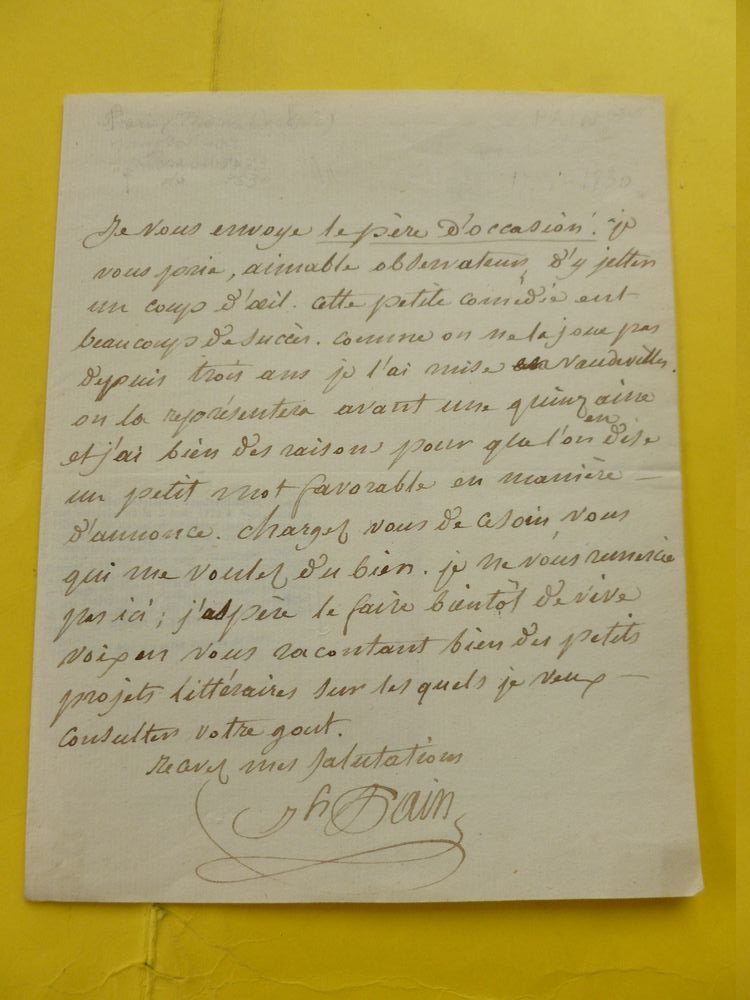 Je vous envoye le père d'occasion. je
vous prie, aimable observateur, d'y jetter
un coup d'œil. cette petite comédie eut
beaucoup de succès. comme on ne la joue pas
depuis trois ans je l'ai mise en vaudevilles.
on la représentera avant une quinzaine
et j'ai bien des raisons pour que l'on en dise
un petit mot favorable en manière
d'annonce. chargez vous de ce soin, vous
qui me voulez du bien. je ne vous remercie
pas ici ; j'espère le faire bientôt de vive
voix en vous racontant bien des petits
projets littéraires sur les quels je veux
consulter votre gout.
recevez mes salutations
Jh Pain